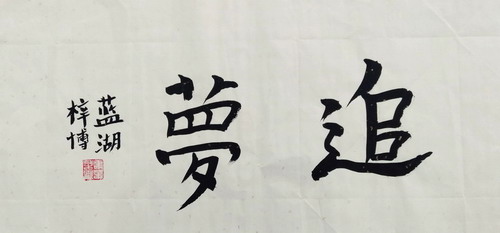 追夢
蓝湖
梓博